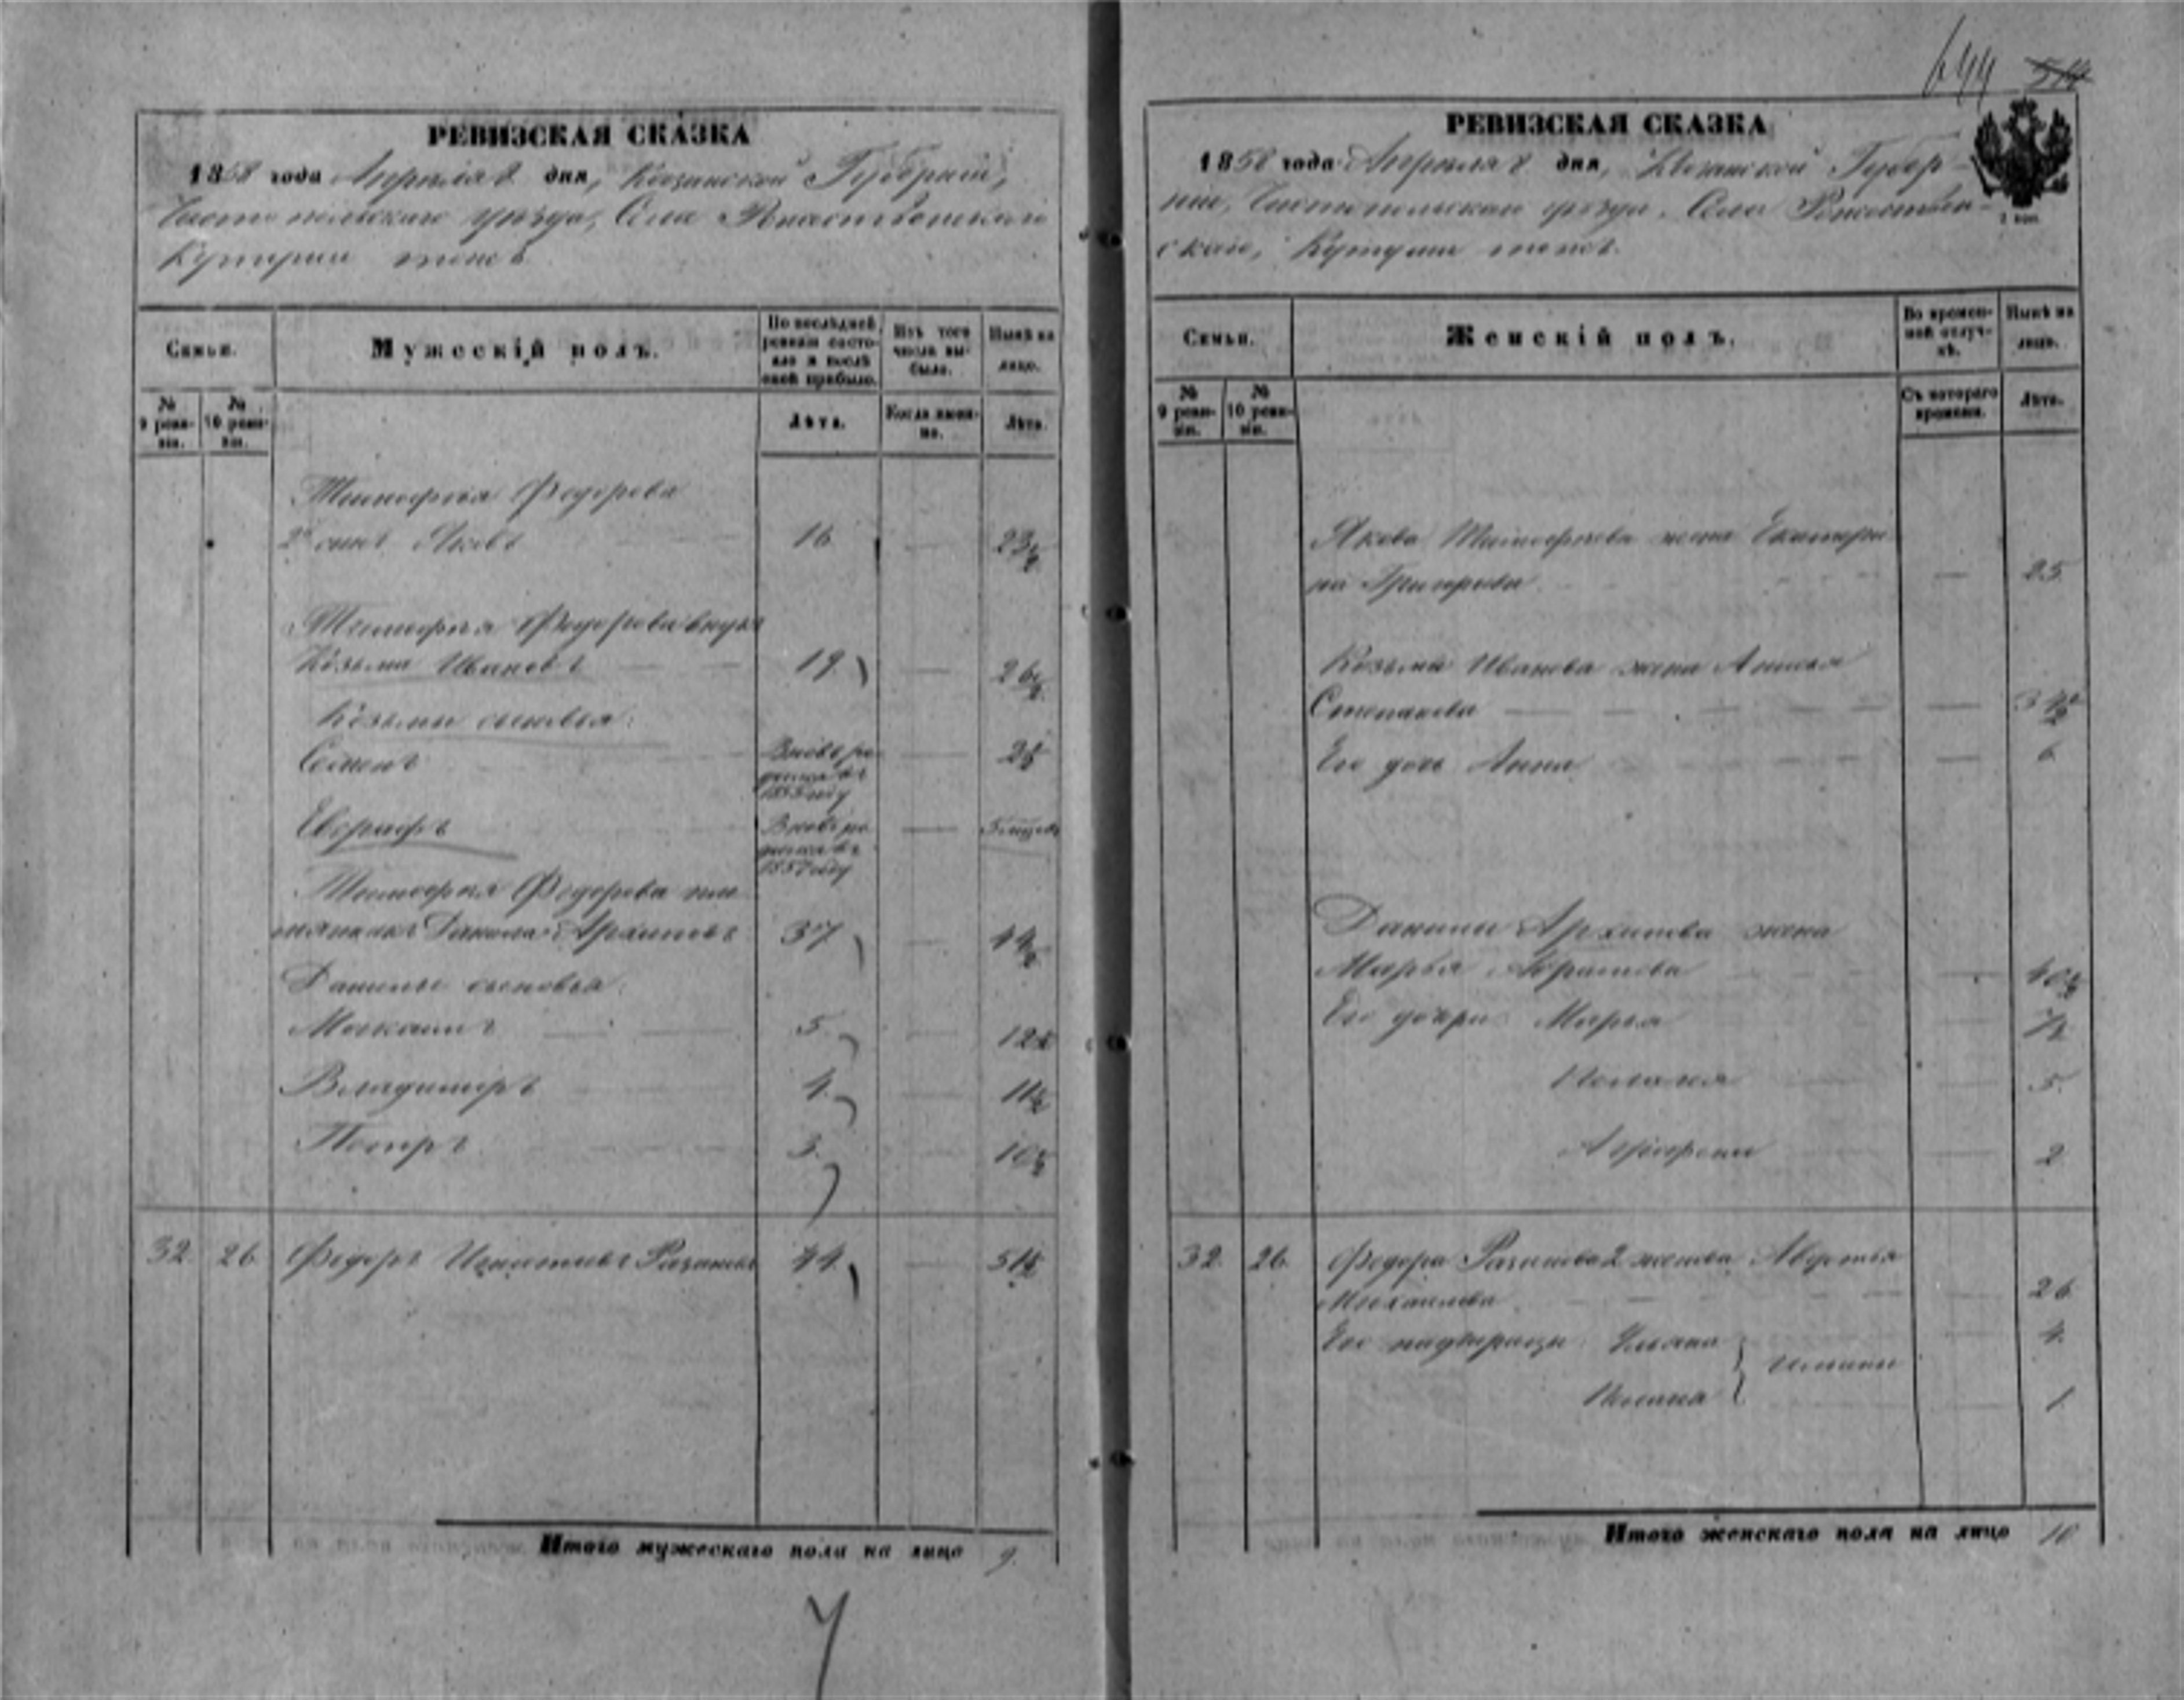 644 514
РЕВИЗСКАЯ СКАЗКА
1858 года Апреля 8 дня, Казанской Губерніи,
Чистопольскаго уезда, Села Рождественскаго
Кутуши тожъ
Семьи.
Мужескій полъ.
По послѣдней ревизіи состояло и послѣ оной прибыло.
Изъ того числа выбыло.
Нынѣ на лицо.
№ 9 ревизіи.
№ 10 ревизіи.
Лѣта.
Когда именно.
Лѣта.
Тимофея Федорова
2й сынъ Яковъ 16 23½
Тимофея Федорова внукъ
Козьма Ивановъ 19 26½
Козьмы сыновья:
Семенъ Вновь рожденъ въ 1855 году
Евграфъ Вновь рожденъ въ 1857 году
Тимофея Федорова пле-
мянникъ Данила Архиповъ 37 44½
Данилы сыновья:
5 12½
Владимиръ 4 11½
Петръ 3 10½
32 26 Федоръ Игнатьевъ 44 51½
Итого мужескаго пола на лицо 9.
РЕВИЗСКАЯ СКАЗКА
1858 года Апреля 8 дня, Казанской Губер-
ніи, Чистопольскаго уезда, Села Рождествен-
скаго, Кутуши тожъ.
Семьи.
Женскій полъ.
Во временной отлучкѣ.
Нынѣ на лицо.
№ 9 ревизіи.
№ 10 ревизіи.
Съ котораго времени.
Лѣта.
Якова Тимофеева жена Екатери-
на Григорьева 25
Козьмы Иванова жена Анисья
Степанова
Его дочь Анна 6
Данилы Архипова жена
Марья Абрамова 40½
Его дочери Марья
5
Аграфена 2
32 26 Федора 2 жена Авдотья
Михайлова 26
Его падчерицы Ульяна 4
1
Итого женскаго пола на лицо 10